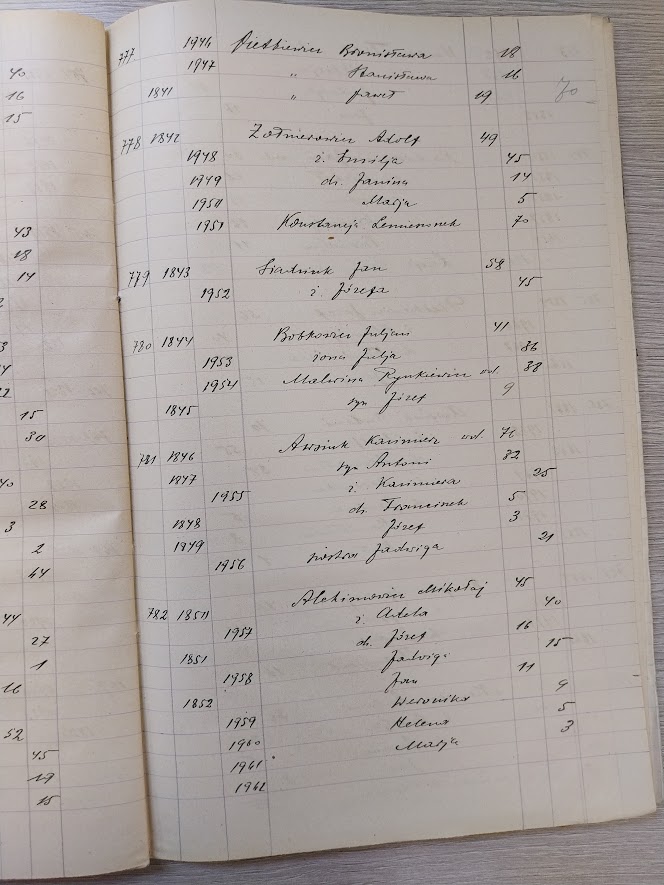 777 1946 Pietkiewicz Bronisława 18
1947 " Stanisława 16
1841 " Paweł 19 70
778 1842 Żołnierowicz Adolf 49
1948 ż. Emilja 45
1949 dz. Janina 14
1950 Marja 5
1951 Konstancja 70
779 1843 Jan 58
1952 ż. Józefa 45
780 1844 Bobkowicz Juljan 41
1953 żona Julja 36
1954 Malwina Rynkiewicz wd. 88
1845 syn Józef 9
781 1846 Kazimierz wd. 76
1847 syn Antoni 32
1955 ż. Kazimiera 25
1848 dz. Franciszek 5
1949 Józef 3
1956 siostra Jadwiga 21
782 1850 Alchimowicz Mikołaj 45
1957 ż. Adela 40
1851 dz. Józef 16
1958 Jadwiga 15
1852 Jan 11
1959 Weronika 9
1960 Helena 5
1961 Marja 3
1962
40
16
15
43
18
14
15
30
28
3
2
44
44
27
1
16
52
45
19
15